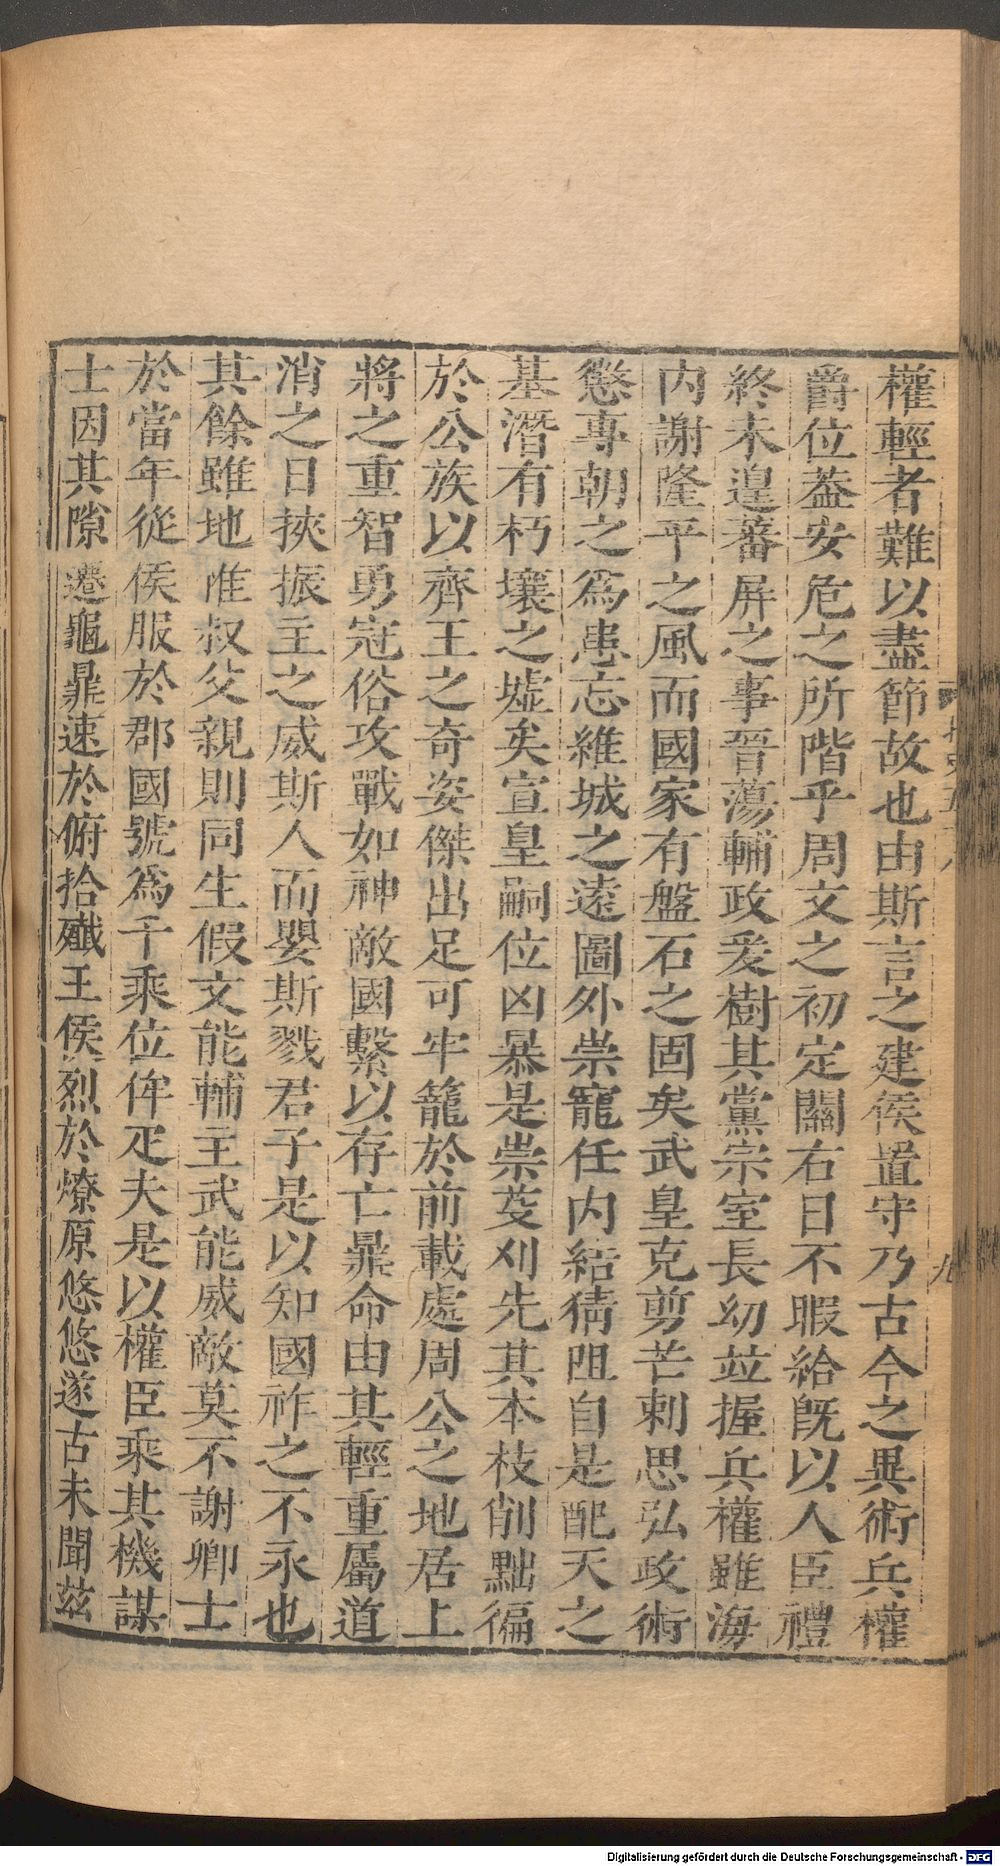 權輕者難以盡節故也由斯言之建侯置守乃古今之異術兵權
爵位葢安危之所階乎周文之初定關右日不暇給旣以人臣禮
終未遑蕃屏之事晉蕩輔政爰樹其黨宗室長幼並握兵權雖海
内謝隆平之風而國家有盤石之固矣武皇克剪芒刺思弘政術
懲專朝之爲患忘維城之遠圖外崇寵任内結猜阻自是配天之
基潛有朽壤之墟矣宣皇嗣位凶暴是崇芟刈先其本枝削黜徧
於公族以齊王之奇姿傑出足可牢籠於前載處周公之地居上
將之重智勇冠俗攻戰如神敵國繫以存亡鼎命由其輕重屬道
消之日挾振主之威斯人而嬰斯戮君子是以知國祚之不永也
其餘雖地惟叔父親則同生假文能輔主武能威敵莫不謝卿士
於當年從侯服於郡國號爲千乘位侔疋夫是以權臣乘其機謀
士因其隙遷龜鼎速於俯拾殲王侯烈於燎原悠悠遂古未聞茲
九
Digitalisierung gefördert durch die Deutsche Forschungsgemeinschaft - DFG